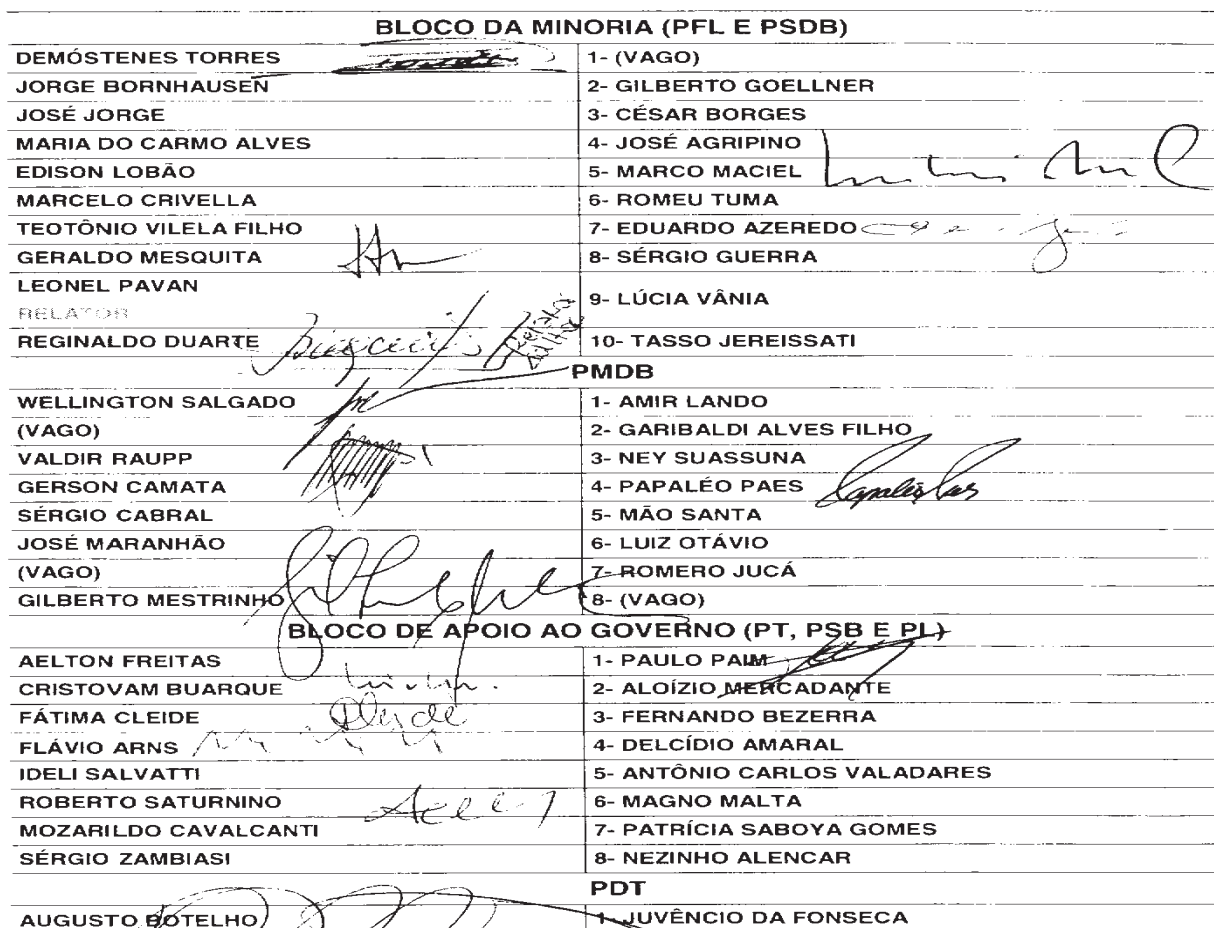 BLOCO DA MINORIA (PFL E PSDB)
DEMÓSTENES TORRES 1- (VAGO)
JORGE BORNHAUSEN 2- GILBERTO GOELLNER
JOSÉ JORGE 3- CÉSAR BORGES
MARIA DO CARMO ALVES 4- JOSÉ AGRIPINO
EDISON LOBÃO 5- MARCO MACIEL
MARCELO CRIVELLA 6- ROMEU TUMA
TEOTÔNIO VILELA FILHO 7- EDUARDO AZEREDO
GERALDO MESQUITA 8- SÉRGIO GUERRA
LEONEL PAVAN
RELATOR 9- LÚCIA VÂNIA
REGINALDO DUARTE 10- TASSO JEREISSATI
PMDB
WELLINGTON SALGADO 1- AMIR LANDO
(VAGO) 2- GARIBALDI ALVES FILHO
VALDIR RAUPP 3- NEY SUASSUNA
GERSON CAMATA 4- PAPALÉO PAES
SÉRGIO CABRAL 5- MÃO SANTA
JOSÉ MARANHÃO 6- LUIZ OTÁVIO
(VAGO) 7- ROMERO JUCÁ
GILBERTO MESTRINHO 8- (VAGO)
BLOCO DE APOIO AO GOVERNO (PT, PSB E PL)
AELTON FREITAS 1- PAULO PAIM
CRISTOVAM BUARQUE 2- ALOÍZIO MERCADANTE
FÁTIMA CLEIDE 3- FERNANDO BEZERRA
FLÁVIO ARNS 4- DELCÍDIO AMARAL
IDELI SALVATTI 5- ANTÔNIO CARLOS VALADARES
ROBERTO SATURNINO 6- MAGNO MALTA
MOZARILDO CAVALCANTI 7- PATRÍCIA SABOYA GOMES
SÉRGIO ZAMBIASI 8- NEZINHO ALENCAR
PDT
AUGUSTO BOTELHO 1- JUVÊNCIO DA FONSECA